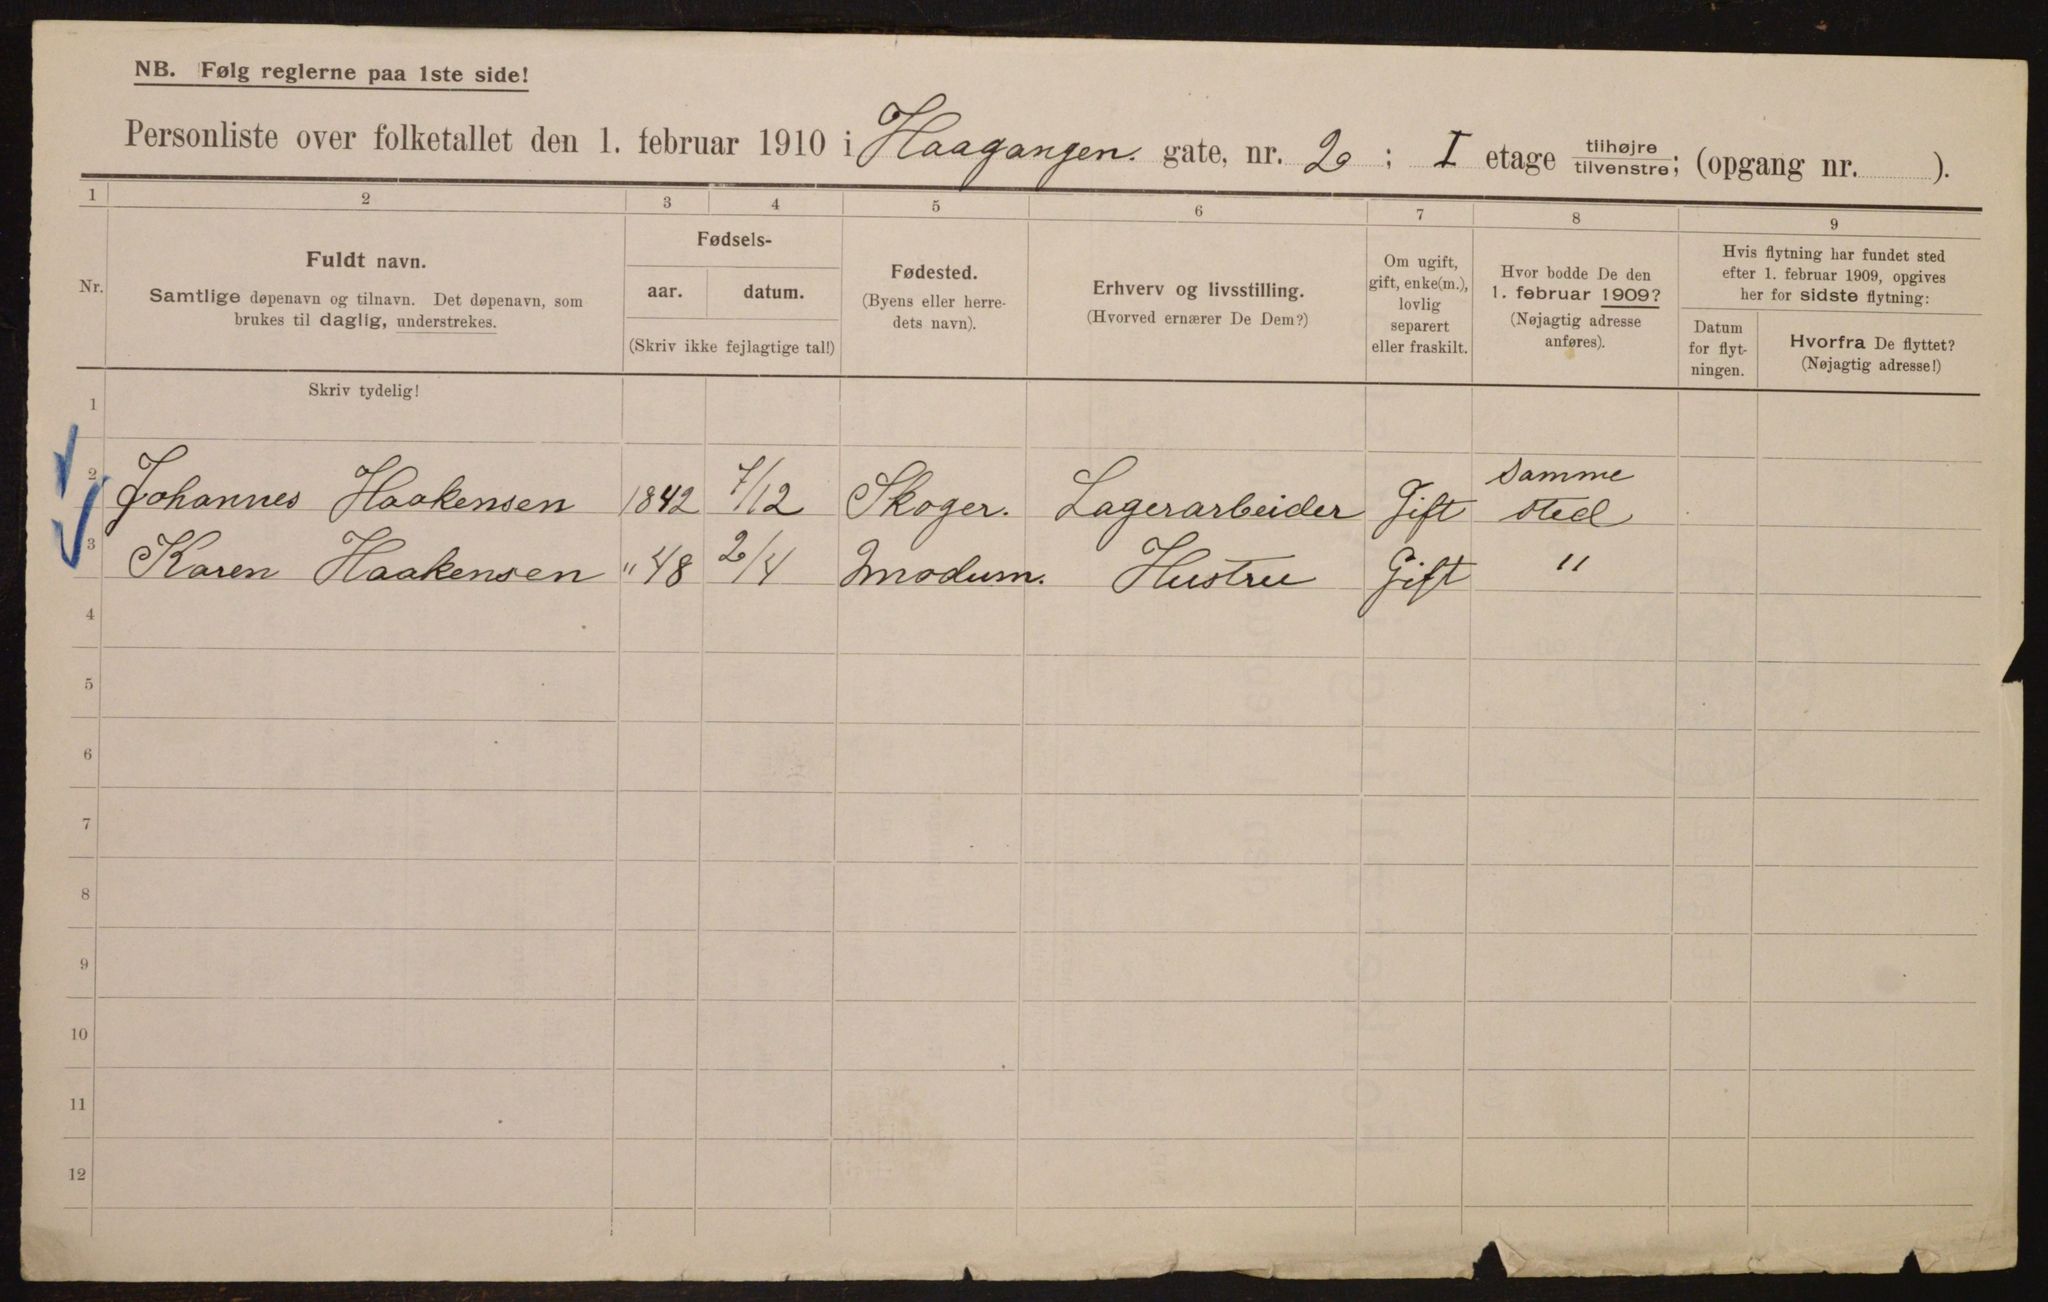 NB. Følg reglerne paa 1ste side!
Personliste over folketallet den 1. februar 1910 i Haagangen. gate, nr. 2 ; I etage tilhøjre tilvenstre; (opgang nr. ).
1 2 3 4 5 6 7 8 9
Nr.
Fuldt navn.
Samtlige døpenavn og tilnavn. Det døpenavn, som
brukes til daglig, understrekes.
Fødsels-
aar. datum.
(Skriv ikke fejlagtige tal!)
Fødested.
(Byens eller herre-
dets navn).
Erhverv og livsstilling.
(Hvorved ernærer De Dem?)
Om ugift,
gift, enke(m.),
lovlig
separert
eller fraskilt.
Hvor bodde De den
1. februar 1909?
(Nøjagtig adresse
anføres).
Hvis flytning har fundet sted
efter 1. februar 1909, opgives
her for sidste flytning:
Datum
for flyt-
ningen.
Hvorfra De flyttet?
(Nøjagtig adresse!)
Skriv tydelig!
1
2 Johannes Haakensen 1842 7/12 Skoger. Lagerarbeider Gift Samme sted
3 Karen Haakensen " 48 2/4 Modum. Hustru Gift "
4
5
6
7
8
9
10
11
12